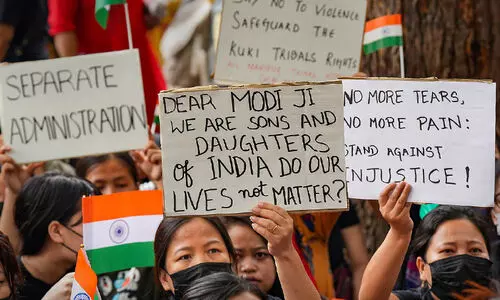 SEPARATE
ADMINISTRATION
SAY NO TO VIOLENCE
SAFEGUARD THE
KUKI TRIBALS RIGHTS
DEAR MODI JI
WE ARE SONS AND
DAUGHTERS
OF INDIA DO OUR
LIVES NOT MATTER?
NO MORE TEARS,
NO MORE PAIN:
STAND AGAINST
INJUSTICE!